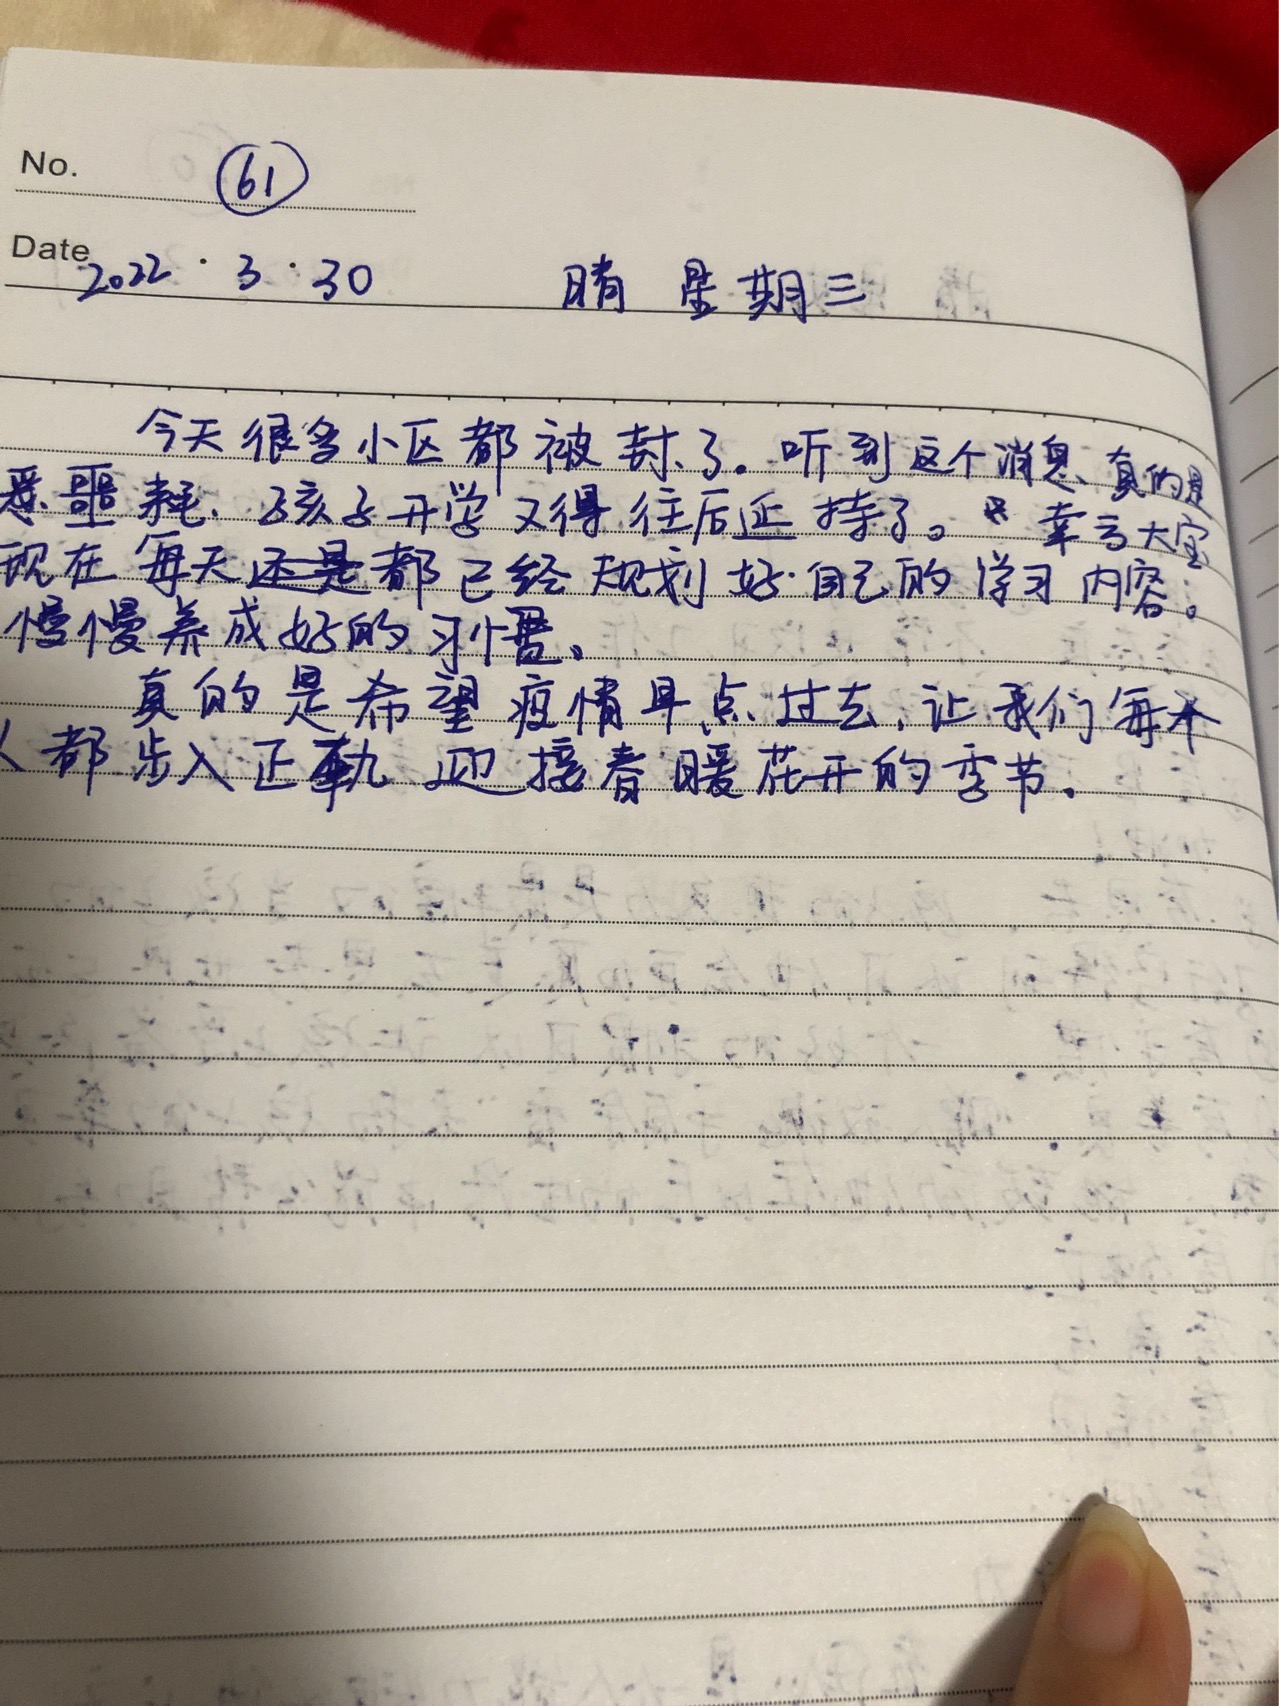 No. 61
Date 2022·3·30 晴 星期三
今天很多小区都被封了。听到这个消息、真的是
噩耗、孩子开学又得往后延持了。幸亏大宝
现在每天都已经规划好自己的学习内容。
慢慢养成好的习惯、
真的是希望疫情早点过去,让我们每个
人都步入正轨 迎接春暖花开的季节.